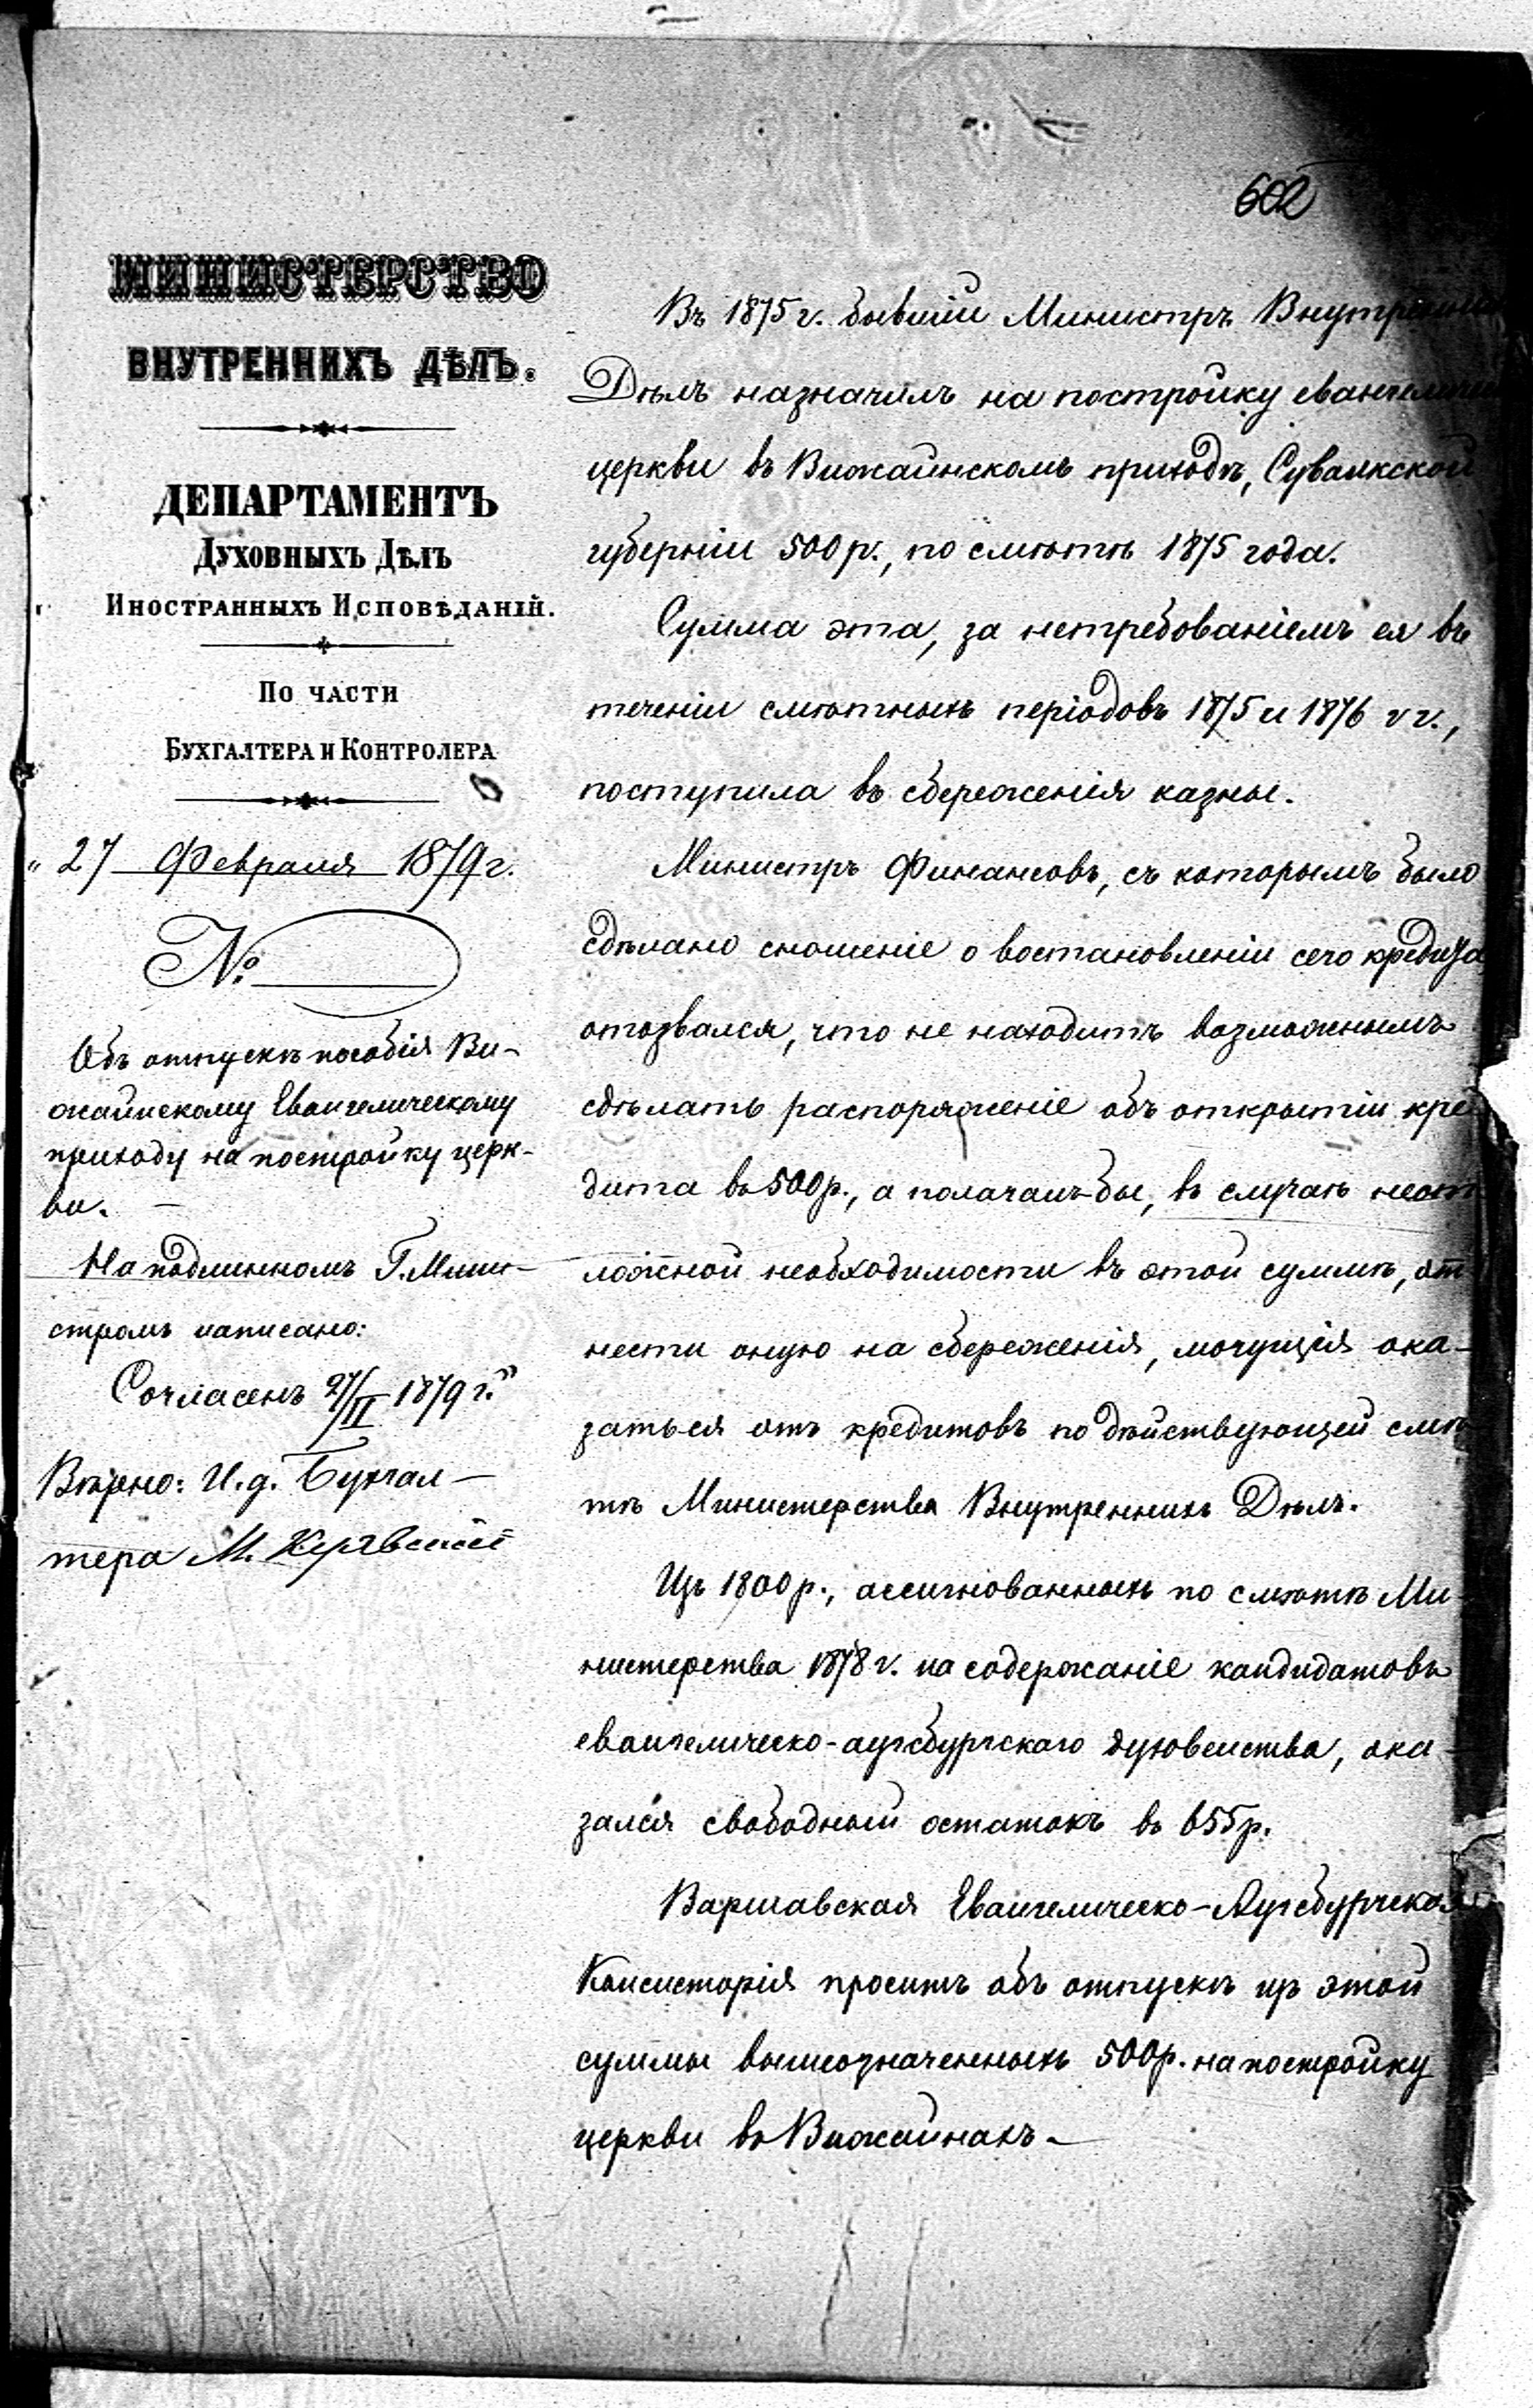 602
МИНИСТЕРСТВО
ВНУТРЕННИХЪ ДѢЛЪ.
ДЕПАРТАМЕНТЪ
Духовныхъ Дѣлъ
Иностранныхъ Исповѣданій.
По части
Бухгалтера и Контролера
„27 Февраля 1879 г.
№
Объ отпускѣ пособія Ви-
жайнскому Евангелическому
приходу на постройку церк-
ви. —
На подлинномъ Г. Мини-
стромъ написано:
Согласенъ 27/II 1879 г."
Вѣрно: И. д. Бухгал-
тера М.
Въ 1875 г. бывшій Министръ Внутреннихъ
Дѣлъ назначилъ на постройку евангелической
церкви въ Вижайнскомъ приходѣ, Сувалкской
губерніи 500 р., по смѣтѣ 1875 года.
Сумма эта, за нетребованіемъ ея въ
теченіи смѣтныхъ періодовъ 1875 и 1876 г г.,
поступила въ сбереженія казны.
Министръ Финансовъ, съ которымъ было
сдѣлано сношеніе о востановленіи сего кредита
отозвался, что не находитъ возможнымъ
сдѣлать распоряженіе объ открытіи кре-
дита въ 500 р., а полагалъ-бы, въ случаѣ неот-
ложной необходимости въ этой суммѣ, от-
нести оную на сбереженія, могущія ока-
заться отъ кредитовъ по дѣйствующей смѣ-
тѣ Министерства Внутреннихъ Дѣлъ.
Изъ 1800 р., ассигнованныхъ по смѣтѣ Ми-
нистерства 1878 г. на содержаніе кандидатовъ
евангелическо-аугсбургскаго духовенства, ока-
зался свободный остатокъ въ 655 р.
Варшавская Евангелическо-Аугсбургская
Консисторія проситъ объ отпускѣ изъ этой
суммы вышеозначенныхъ 500 р. на постройку
церкви въ Вижайнахъ. —